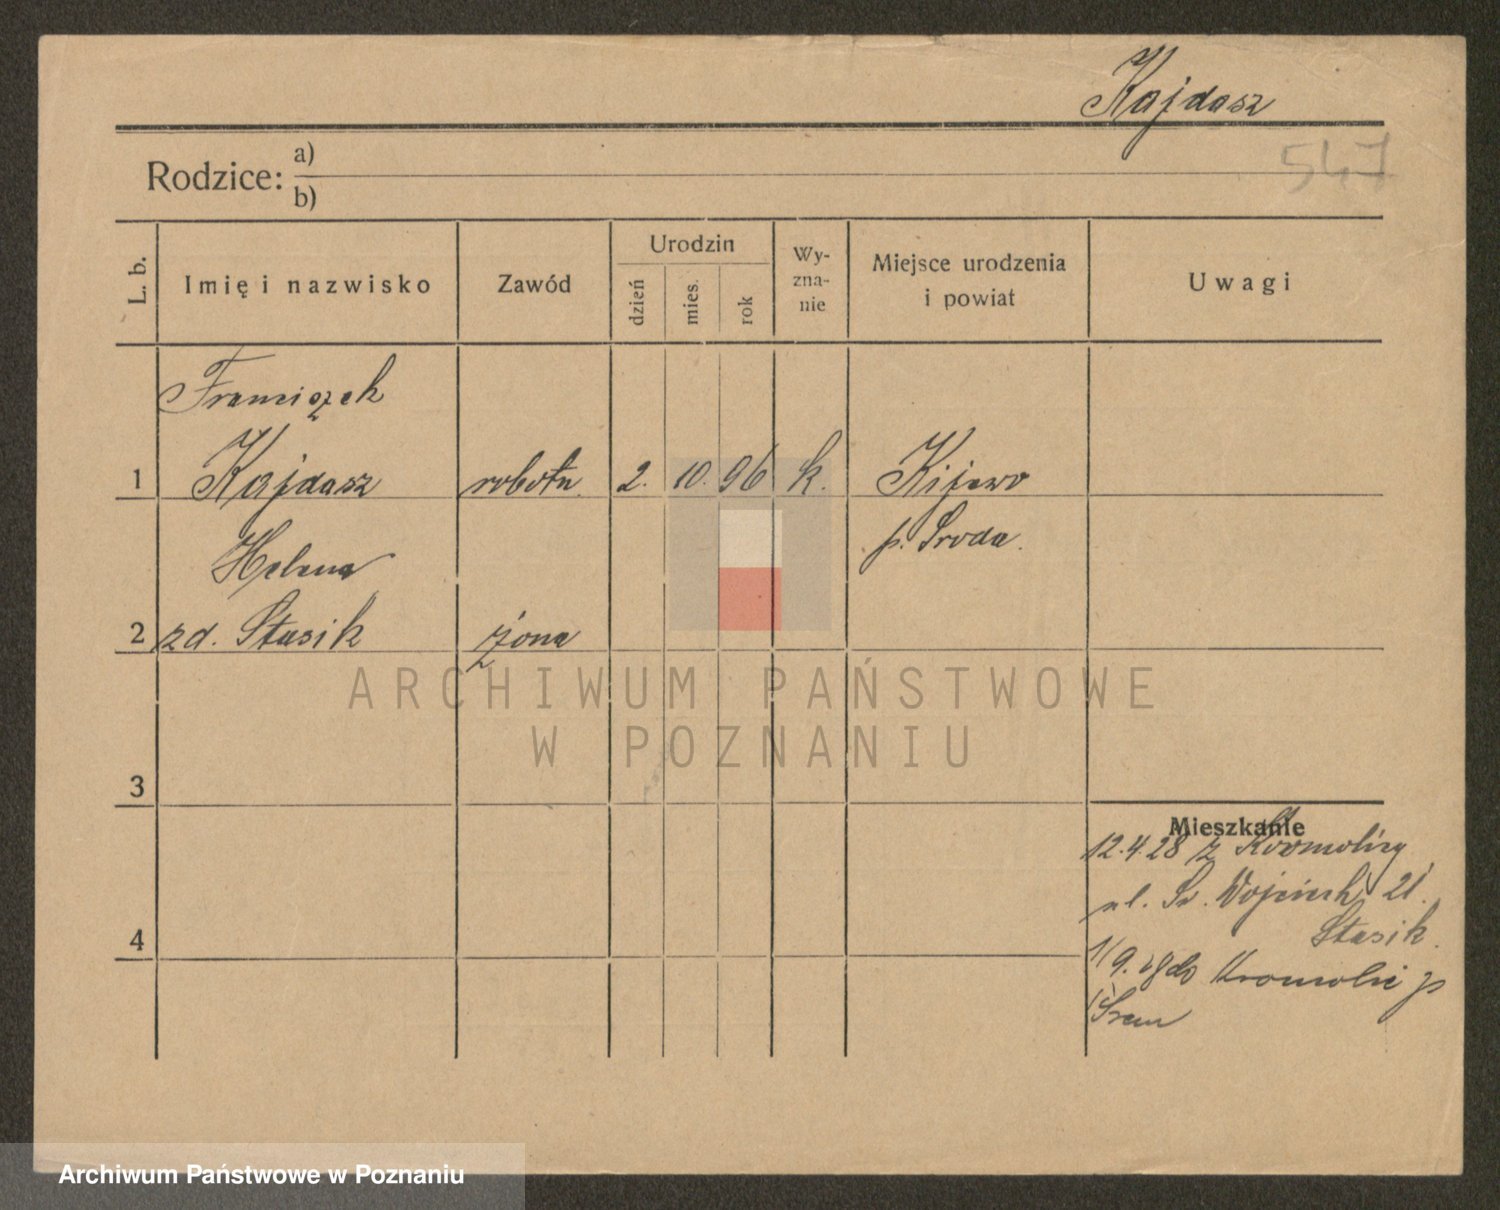 Kajdasz
547
Rodzice: a)
b)
L. b.
Imię i nazwisko
Zawód
Urodzin
dzień
mies.
rok
Wy-
zna-
nie
Miejsce urodzenia
i powiat
Uwagi
Franciszek
1 Kajdasz robotn. 2. 10. 96 k. Kijewo
p. Środa.
Helena
2 zd. Stasik żona
3
4
Mieszkanie
12.4.28 z Kromolicy
ul. Św. Wojciech 21.
Stasik.
1/9. 28 do Kromolic p
Śrem
ARCHIWUM PAŃSTWOWE
W POZNANIU
Archiwum Państwowe w Poznaniu